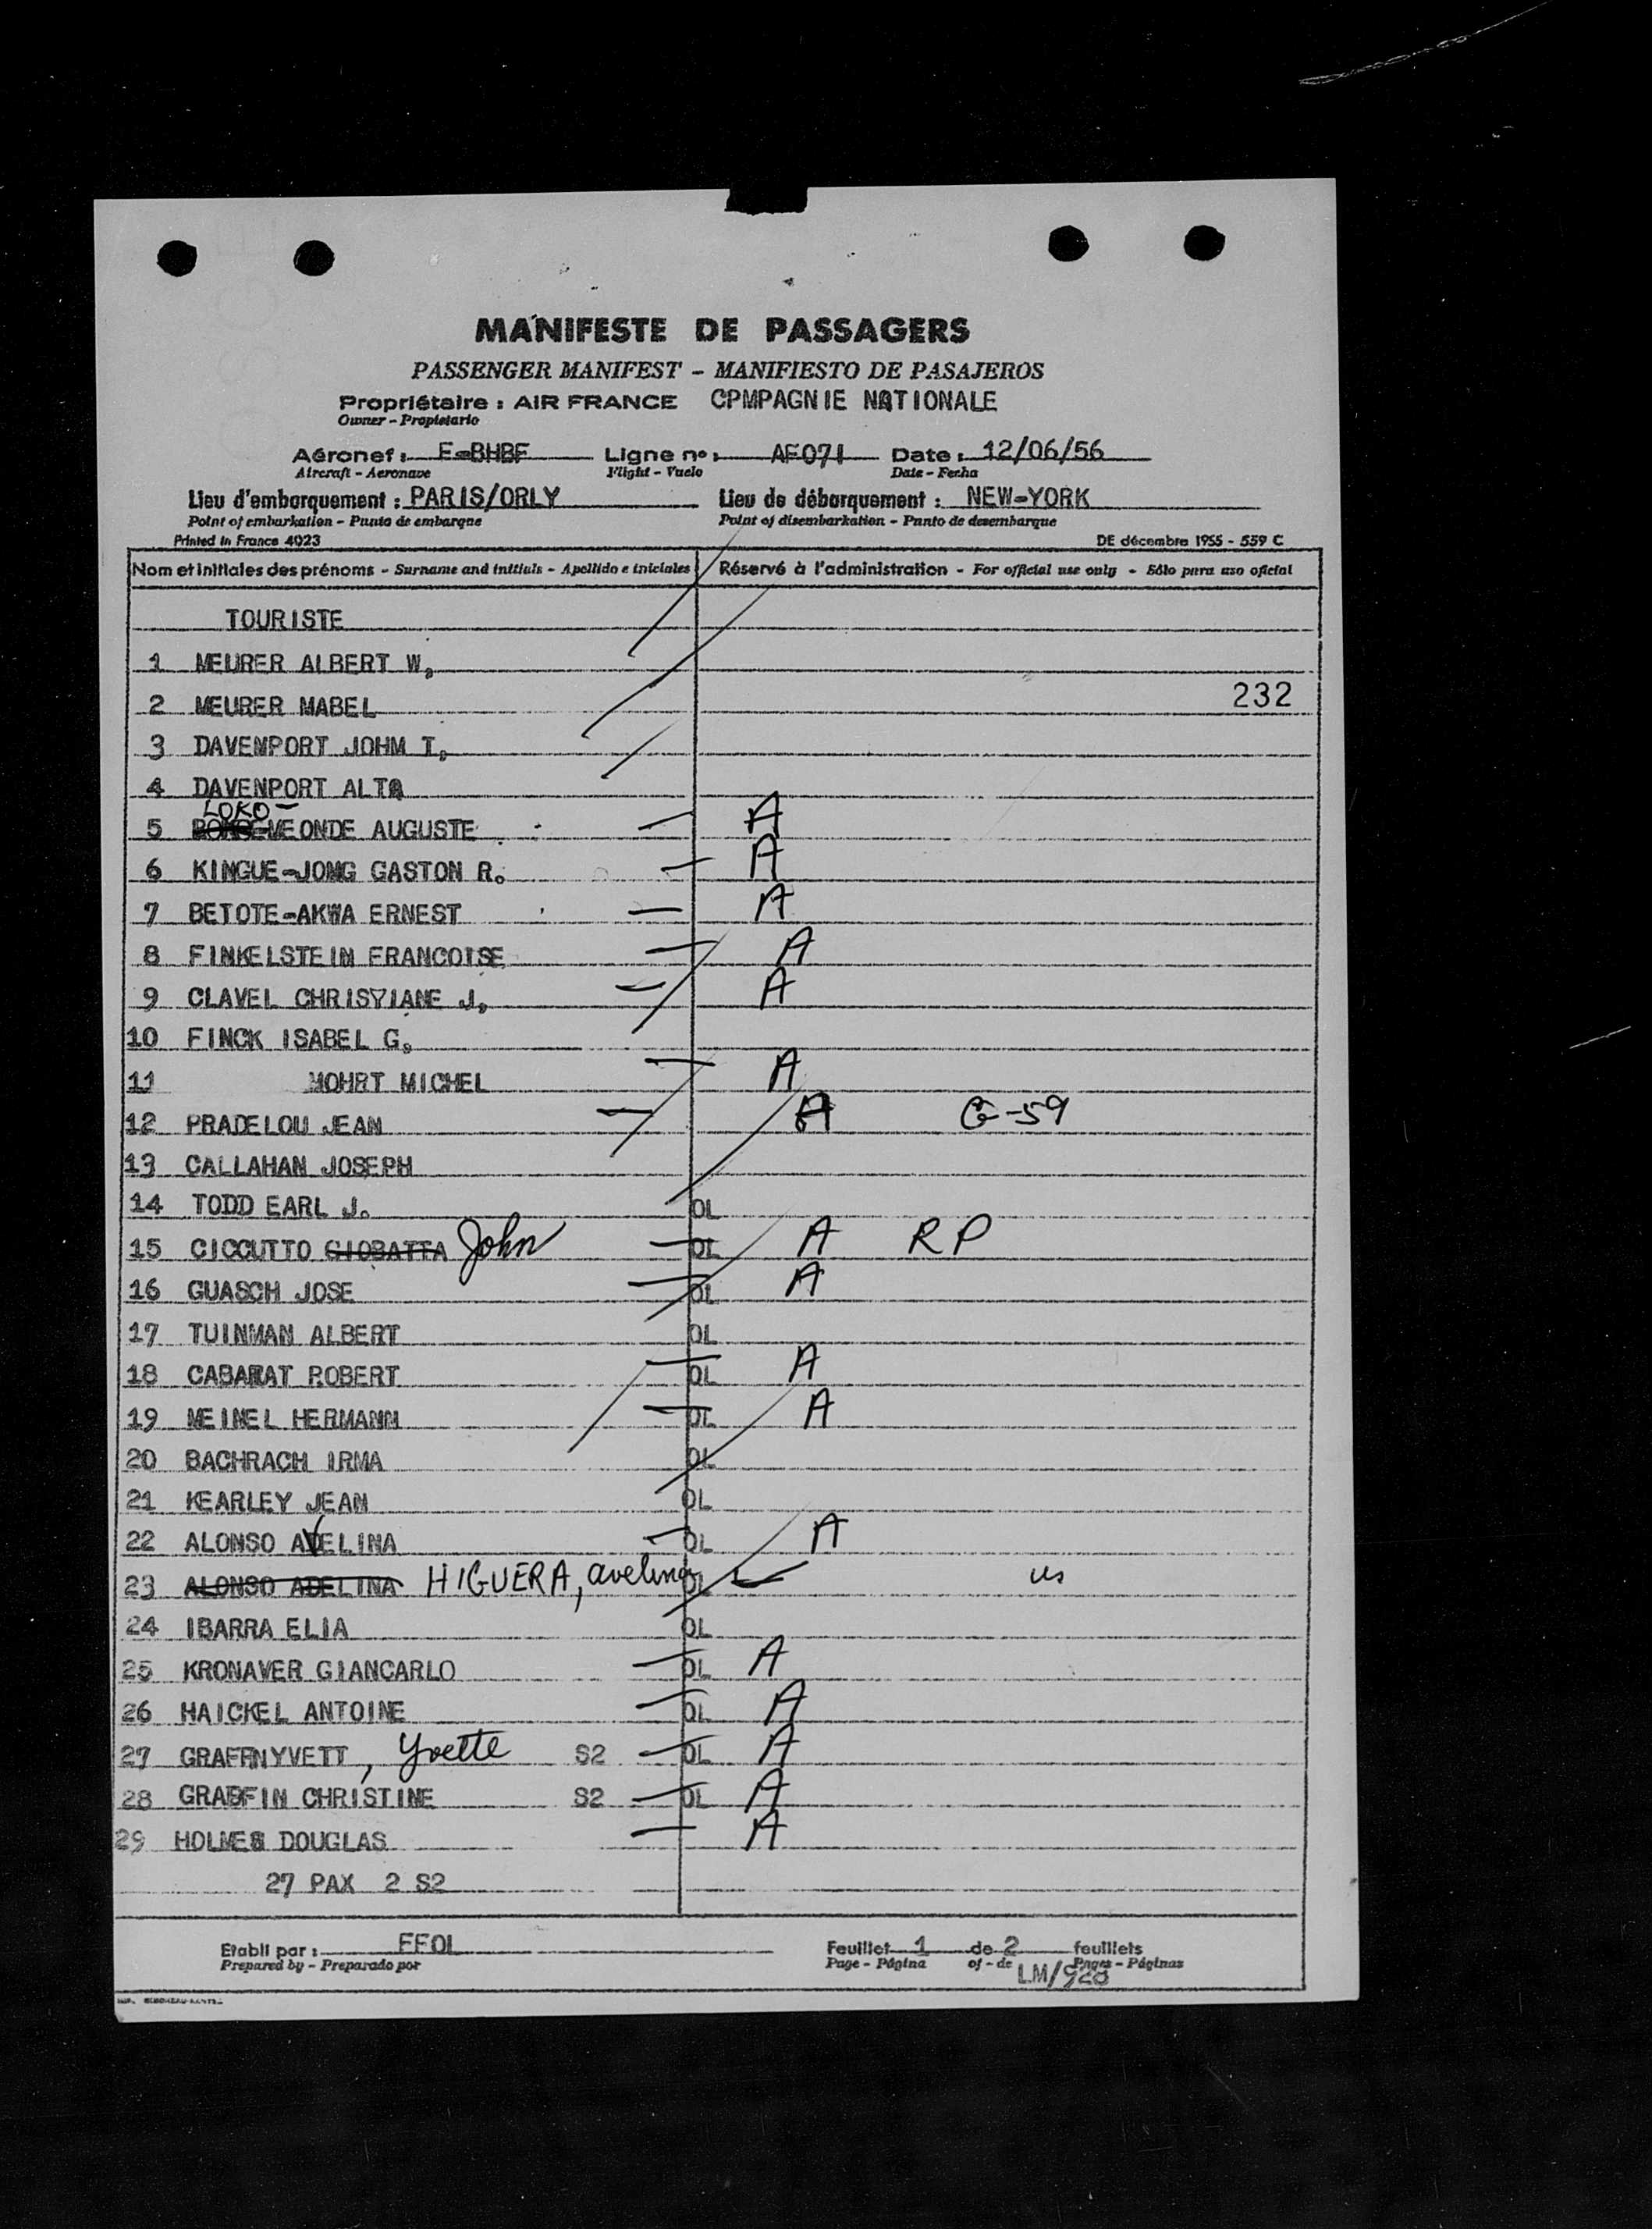 MANIFESTE DE PASSAGERS
PASSENGER MANIFEST - MANIFIESTO DE PASAJEROS
Propriétaire : AIR FRANCE CPMPAGNIE NATIONALE
Owner - Propietario
Aéronef : F-BHBF Ligne no : AF071 Date : 12/06/56
Aircraft - Aeronave Flight - Vuelo Date - Fecha
Lieu d'embarquement : PARIS/ORLY Lieu de débarquement : NEW-YORK
Point of embarkation - Punto de embarque Point of disembarkation - Punto de desembarque
Printed in France 4023 DE décembre 1955 - 559 C
Nom et initiales des prénoms - Surname and initials - Apellido e iniciales Réservé à l'administration - For official use only - Sólo para uso oficial
TOURISTE
1 MEURER ALBERT W,
2 MEURER MABEL 232
3 DAVENPORT JOHM T,
4 DAVENPORT ALTA
LOKO-
5 VEONDE AUGUSTE A
6 KINGUE-JONG GASTON R. A
7 BETOTE-AKWA ERNEST A
8 FINKELSTEIN FRANCOISE A
9 CLAVEL CHRISTIANE J, A
10 FINCK ISABEL G,
11 MOHRT MICHEL A
12 PRADELOU JEAN A G-59
13 CALLAHAN JOSEPH
14 TODD EARL J. OL
15 CICCUTTO GIOBATTA John OL A RP
16 GUASCH JOSE OL A
17 TUINMAN ALBERT OL
18 CABARAT ROBERT OL A
19 MEINEL HERMANN OL A
20 BACHRACH IRMA OL
21 KEARLEY JEAN OL
22 ALONSO AVELINA OL A
23 ALONSO ADELINA HIGUERA, avelina OL us
24 IBARRA ELIA OL
25 KRONAVER GIANCARLO OL A
26 HAICKEL ANTOINE OL A
27 GRAFFNYVETT, Yvette S2 OL A
28 GRAEFIN CHRISTINE S2 OL A
29 HOLMES DOUGLAS A
27 PAX 2 S2
Etabli par : FFOL Feuillet 1 de 2 feuillets
Prepared by - Preparado por Page - Página of - de Pages - Páginas
LM/928